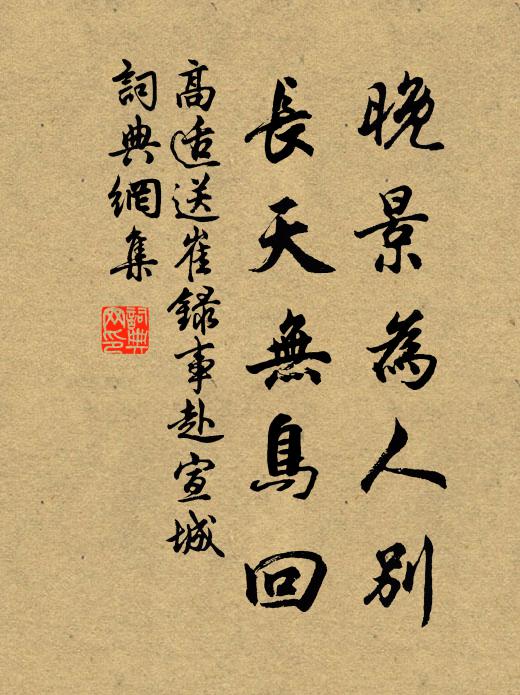 晚景為人別
長天無鳥回
高适送崔錄事赴宣城
詞典網集
詞典网印